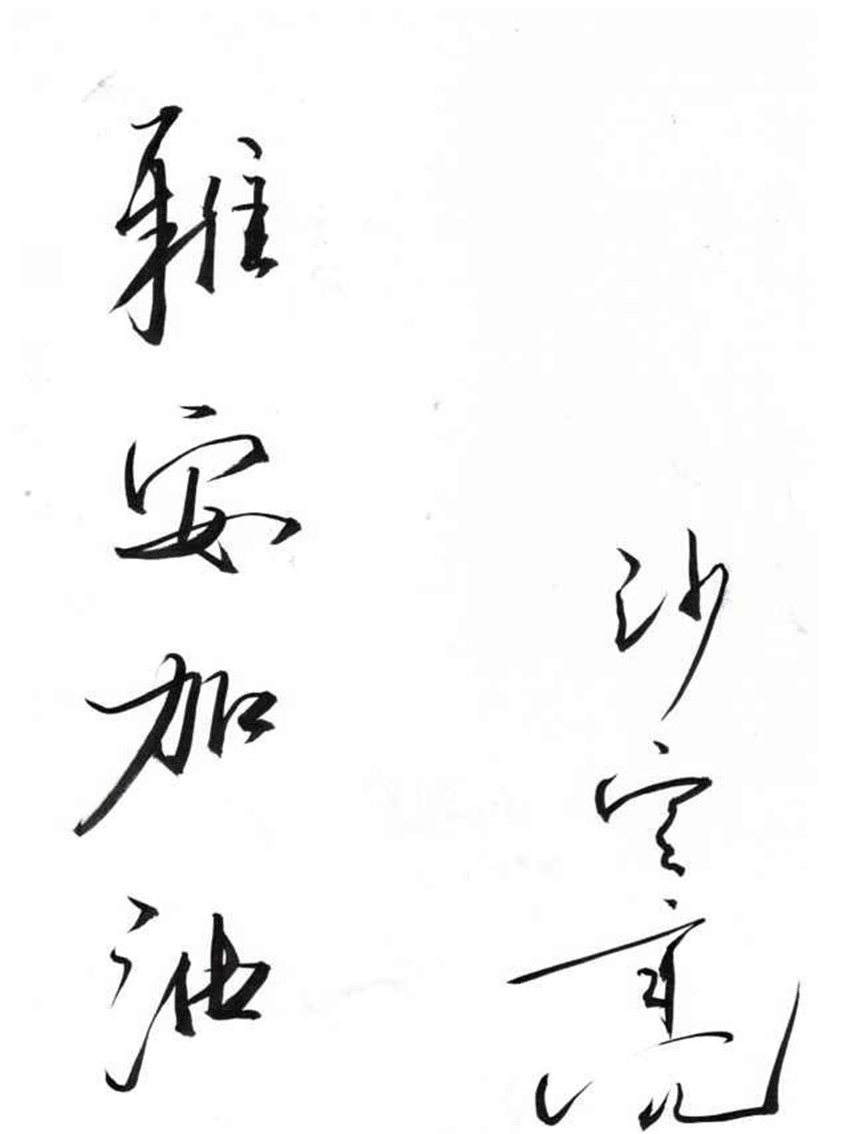 雅安加油
沙宝亮